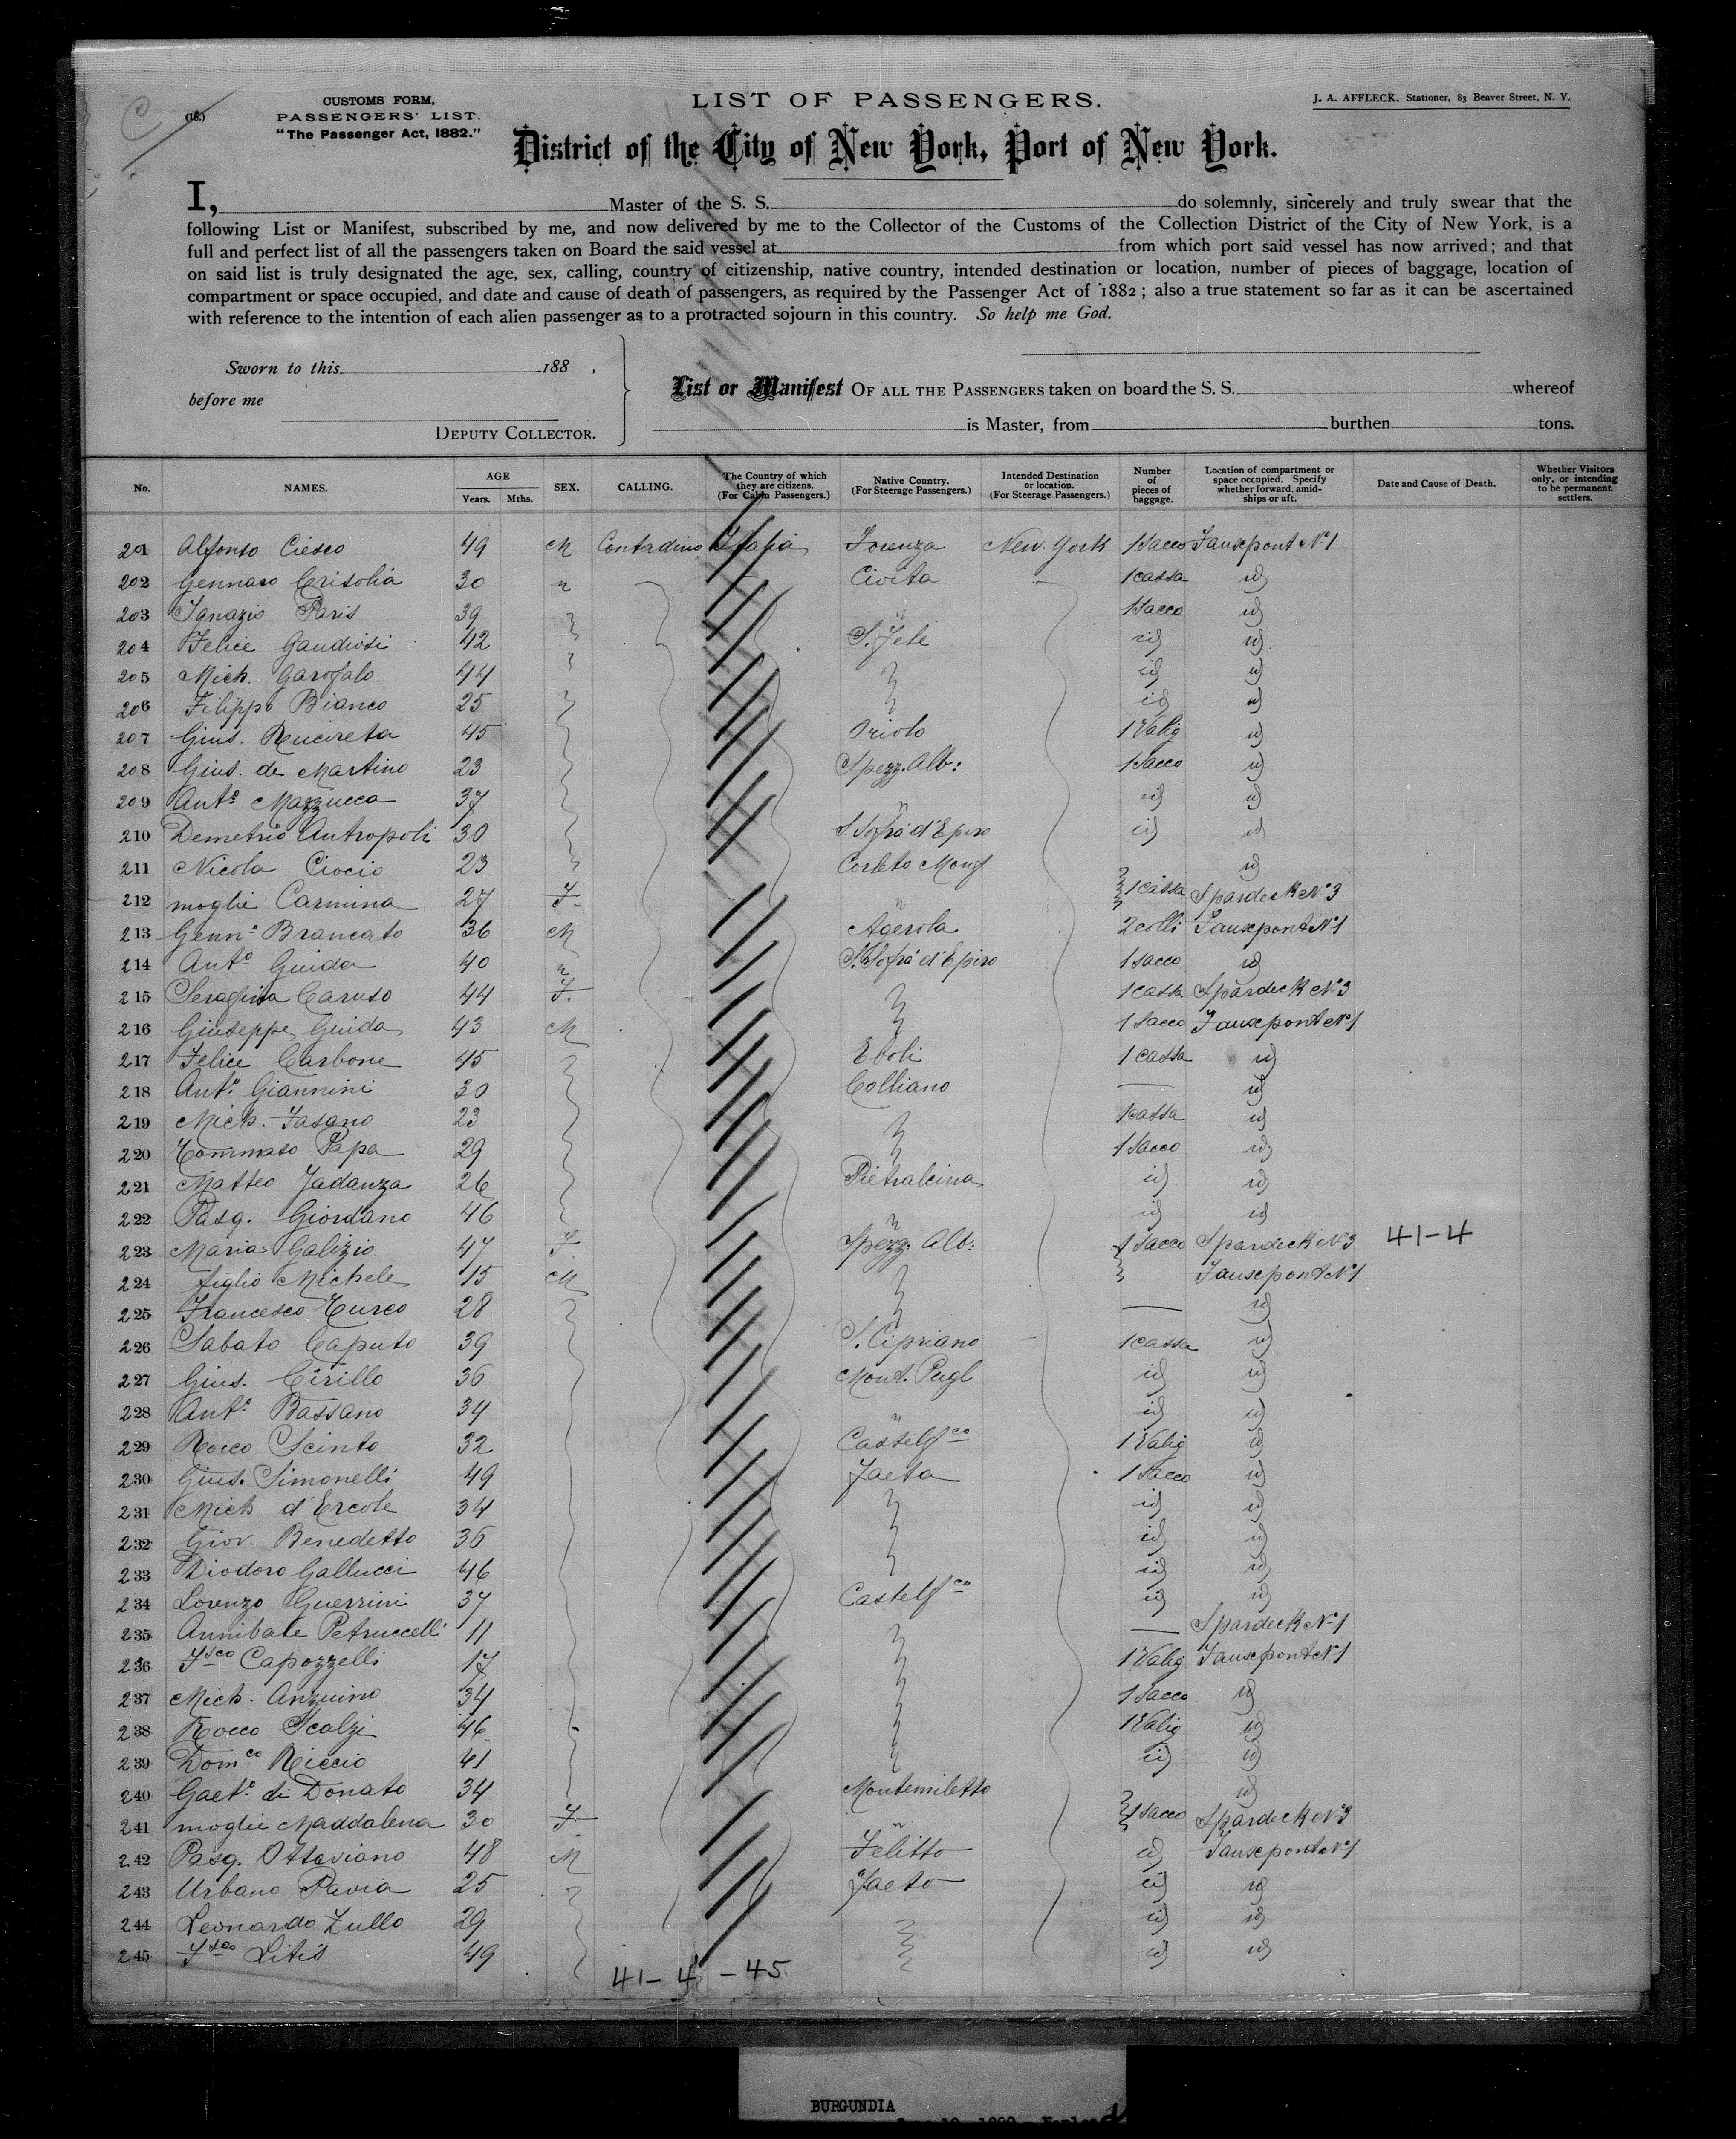 (18.)
CUSTOMS FORM,
PASSENGERS' LIST.
"The Passenger Act, 1882."
LIST OF PASSENGERS.
J. A. AFFLECK, Stationer, 83 Beaver Street, N. Y.
District of the City of New York, Port of New York.
I, Master of the S. S. do solemnly, sincerely and truly swear that the
following List or Manifest, subscribed by me, and now delivered by me to the Collector of the Customs of the Collection District of the City of New York, is a
full and perfect list of all the passengers taken on Board the said vessel at from which port said vessel has now arrived; and that
on said list is truly designated the age, sex, calling, country of citizenship, native country, intended destination or location, number of pieces of baggage, location of
compartment or space occupied, and date and cause of death of passengers, as required by the Passenger Act of 1882; also a true statement so far as it can be ascertained
with reference to the intention of each alien passenger as to a protracted sojourn in this country. So help me God.
Sworn to this 188 .
before me
DEPUTY COLLECTOR.
List or Manifest OF ALL THE PASSENGERS taken on board the S. S. whereof
is Master, from burthen tons.
No. NAMES. AGE Years. Mths. SEX. CALLING. The Country of which they are citizens. (For Cabin Passengers.) Native Country. (For Steerage Passengers.) Intended Destination or location. (For Steerage Passengers.) Number of pieces of baggage. Location of compartment or space occupied. Specify whether forward, amidships or aft. Date and Cause of Death. Whether Visitors only, or intending to be permanent settlers.
201 Alfonso Ciesco 49 M Contadino Italia Forenza New-York 1 Sacco Fauxpont N°1
202 Gennaro Crisolia 30 " Civita 1 cassa id
203 Ignazio Paris 39 " 1 Sacco id
204 Felice Gaudiosi 42 S. Fele id id
205 Mich. Garofalo 44 id id
206 Filippo Bianco 25 id id
207 Gius. 45 Oriolo 1 Valig id
208 Gius. de Martino 23 Spezz. Alb: 1 Sacco id
209 Ant° Mazzucca 37 " id id
210 Demetrio Autropoli 30 S. Sofia d'Epiro id id
211 Nicola Ciocio 23 Corleto Monf id
212 moglie Carmina 27 F " 1 cassa Spardeck N°3
213 Genn° Brancato 36 M Agerola 2 colli Fauxpont N°1
214 Ant° Guida 40 " S. Sofia d'Epiro 1 sacco id
215 Serafina Caruso 44 F. 1 cassa Spardeck N°3
216 Giuseppe Guida 43 M 1 Sacco Fauxpont N°1
217 Felice Carbone 45 Eboli 1 cassa id
218 Ant° Giannini 30 Colliano — id
219 Mich. Fasano 23 1 cassa id
220 Tommaso Papa 29 1 Sacco id
221 Matteo Jadanza 26 Pietralcina id id
222 Pasq. Giordano 46 " id id
223 Maria Galizio 47 F Spezz. Alb: 1 Sacco Spardeck N°3 41-4
224 figlio Michele 15 M Fauxpont N°1
225 Francesco Turco 28 — id
226 Sabato Caputo 39 S. Cipriano 1 cassa id
227 Gius. Cirillo 36 Mont. Pugl id id
228 Ant° Bassano 34 " id id
229 Rocco Scinto 32 Castelfco 1 Valig id
230 Gius. Simonelli 49 Gaeta 1 Sacco id
231 Mich d'Ercole 34 id id
232 Giov. Benedetto 36 id id
233 Diodoro Gallucci 46 id id
234 Lorenzo Guerrini 37 Castelfco id id
235 Annibale Petruccelli 11 — Spardeck N°1
236 Fsco Capozzelli 17 1 Valig Fauxpont N°1
237 Mich. Anzuino 34 1 Sacco id
238 Rocco Scalzi 46 1 Valig id
239 Domco Riccio 41 id id
240 Gaet° di Donato 34 Montemiletto id
241 moglie Maddalena 30 F " 1 Sacco Spardeck N°3
242 Pasq. Ottaviano 48 M Felitto id Fauxpont N°1
243 Urbano Pavia 25 Faeto id id
244 Leonardo Zullo 29 id id
245 Fsco Litis 49 id id
41-4 -45
BURGUNDIA